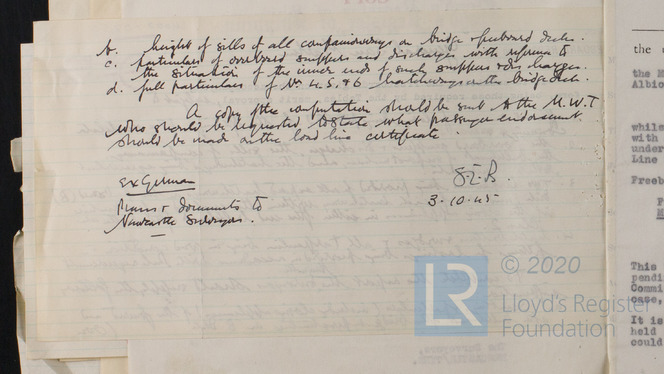 b. height of sills of all companionways on bridge & freeboard decks.
c. particulars of overboard scuppers and discharges with reference to
the situation of the inner ends of such scuppers & discharges.
d. full particulars of Nos 4, 5, & 6 hatchways on the bridge deck.
A copy of the computation should be sent to the M.W.T
who should be requested to state what passenger endorsement
should be made on the load line certificate.
Ex German
Plans & documents to
Newcastle Surveyors.
3.10.45
the
the M
Albio
while
with
under
Line
Freeb
This
pendi
Commi
case,
It is
held
could
LR
© 2020
Lloyd's Register
Foundation